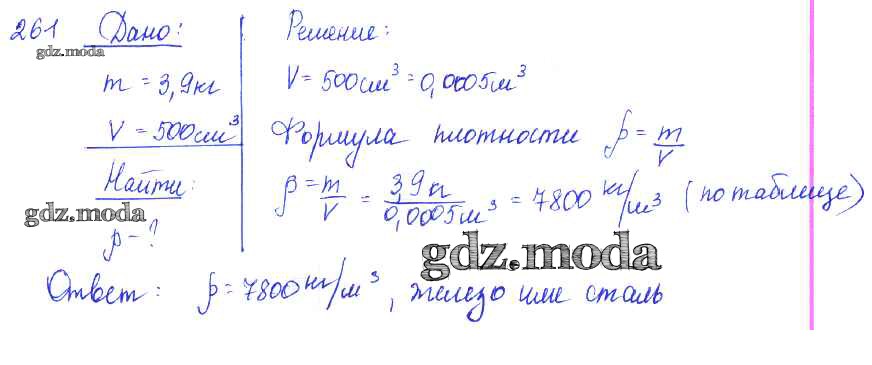 261 Дано:
gdz.moda
m = 3,9кг
V = 500см³
Найти:
gdz.moda
ρ - ?
Решение:
V = 500см³ = 0,0005м³
Формула плотности ρ = m/V
ρ = m/V = 3,9кг/0,0005м³ = 7800 кг/м³ (по таблице)
gdz.moda
Ответ: ρ = 7800 кг/м³, железо или сталь